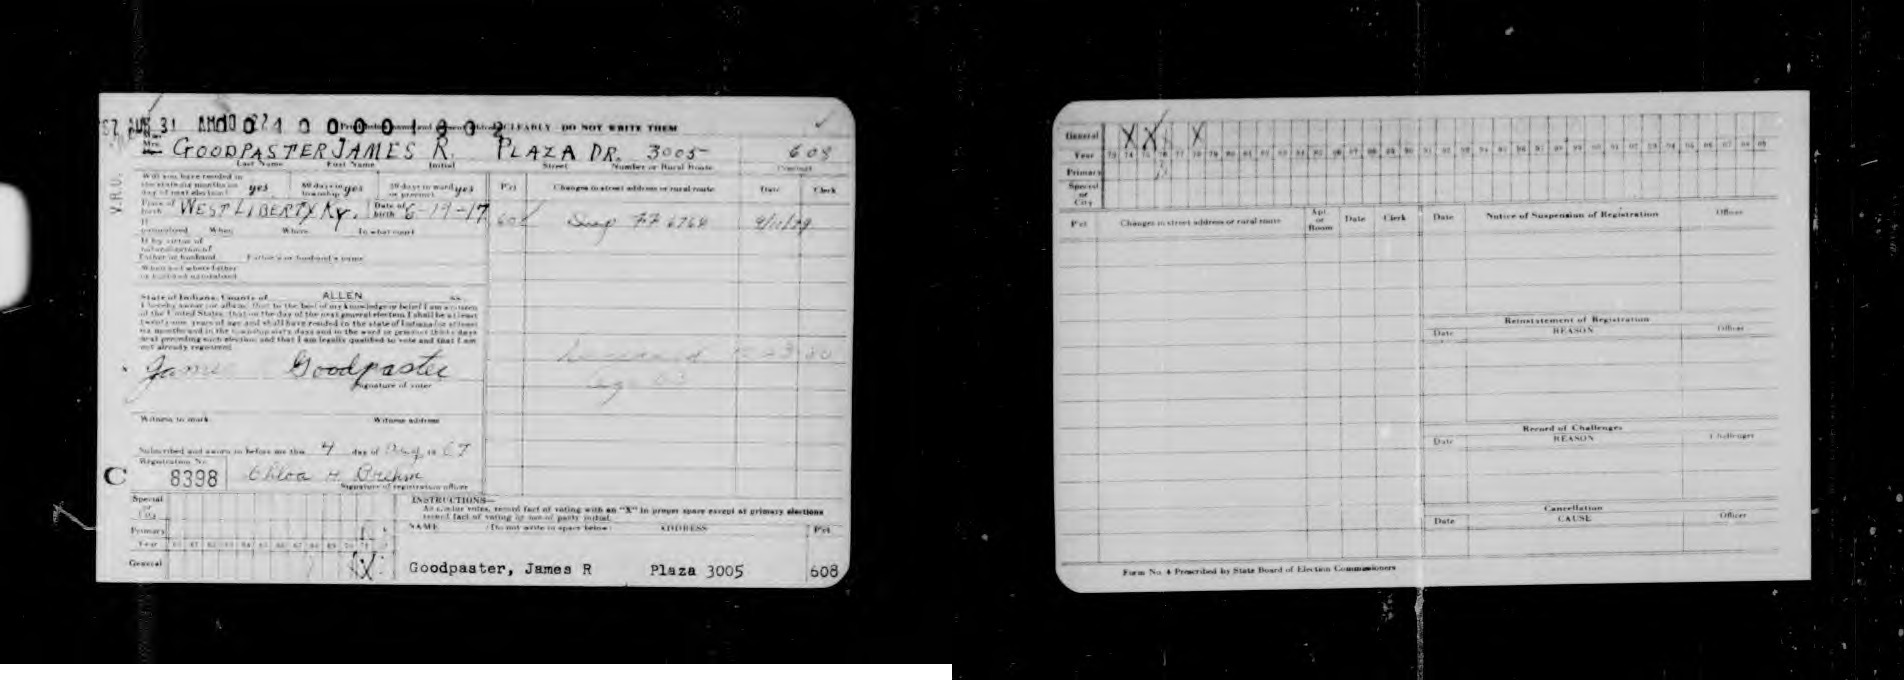 67 AUG 31 AM 10 22 Print below name and address CLEARLY - DO NOT WRITE THEM
Mrs. GOODPASTER JAMES R. PLAZA DR. 3005 608
Last Name First Name Initial Street Number or Rural Route Precinct
V.R.U.
Will you have resided in the state six months on day of next election? yes 60 days in township yes 30 days in ward or precinct yes
Pct Changes in street address or rural route Date Clerk
Place of birth WEST LIBERTY KY. Date of birth 6-19-17
If naturalized When Where In what court
If by virtue of naturalization of Father or husband Father's or husband's name
When and where father or husband naturalized
State of Indiana, County of ALLEN ss.
I hereby swear (or affirm) that to the best of my knowledge or belief I am a citizen
of the United States, that on the day of the next general election I shall be at least
twenty-one years of age and shall have resided in the state of Indiana for at least
six months and in the township sixty days and in the ward or precinct thirty days
next preceding such election and that I am legally qualified to vote and that I am
not already registered.
James Goodpaster
Signature of voter
Witness to mark Witness address
Subscribed and sworn to before me this 4 day of 19 67
Registration No.
C 8398 Chloa H. Brehm
Signature of registration officer
Special or City
Primary
Year
General
INSTRUCTIONS—
As elector votes, record fact of voting with an "X" in proper space except at primary elections
record fact of voting by use of party initial.
NAME (Do not write in space below) ADDRESS Pct
Goodpaster, James R Plaza 3005 608
General X X X
Year 73 74 75 76 77 78 79 80 81 82 83 84 85 86 87 88 89 90 91 92 93 94 95 96 97 98 99
Primary
Special or City
Pct Changes in street address or rural route Apt. or Room Date Clerk
Date Notice of Suspension of Registration Officer
Reinstatement of Registration
Date REASON Officer
Record of Challenges
Date REASON Challenger
Cancellation
Date CAUSE Officer
Form No. 4 Prescribed by State Board of Election Commissioners